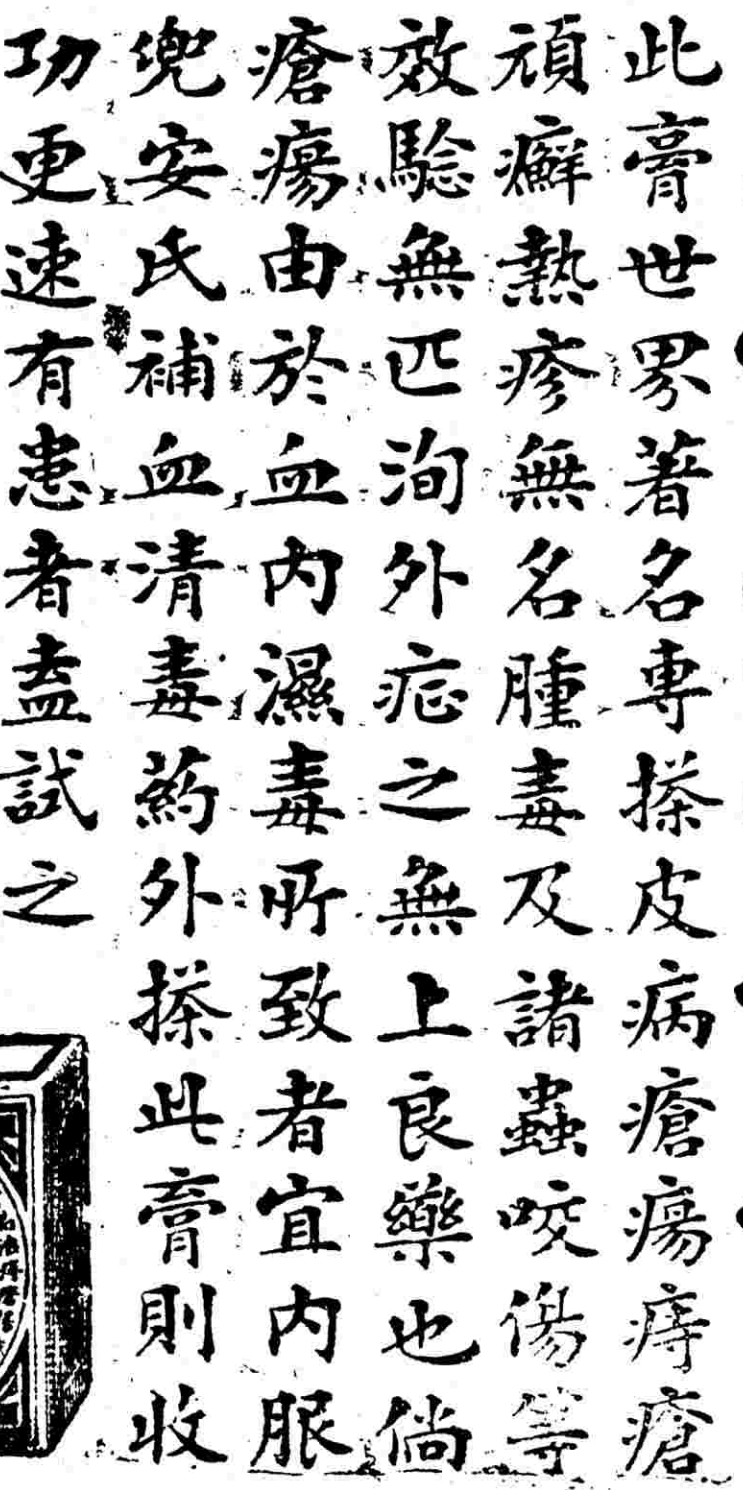 此膏世界著名專搽皮病瘡瘍痔瘡
頑癬熱疹無名腫毒及諸蟲咬傷等
效騐無匹洵外症之無上良藥也倘
瘡瘍由於血內濕毒所致者宜內服
兜安氏補血清毒葯外搽此膏則收
功更速有患者盍試之